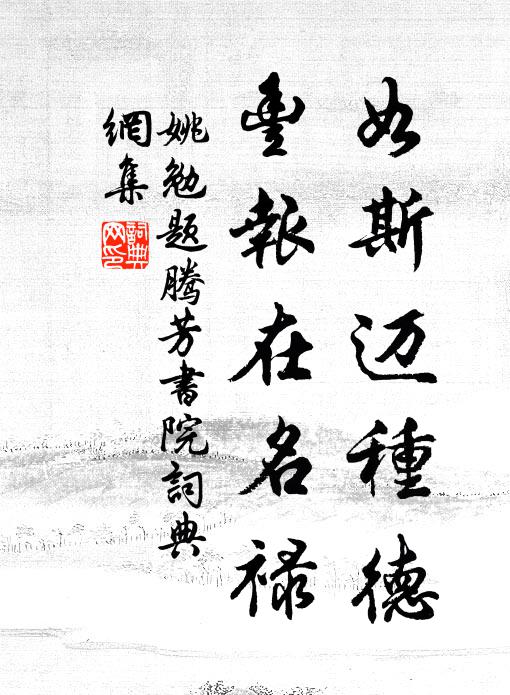 如斯迈種德
豊報在名禄
姚勉題騰芳書院詞典
網集
詞典
网印